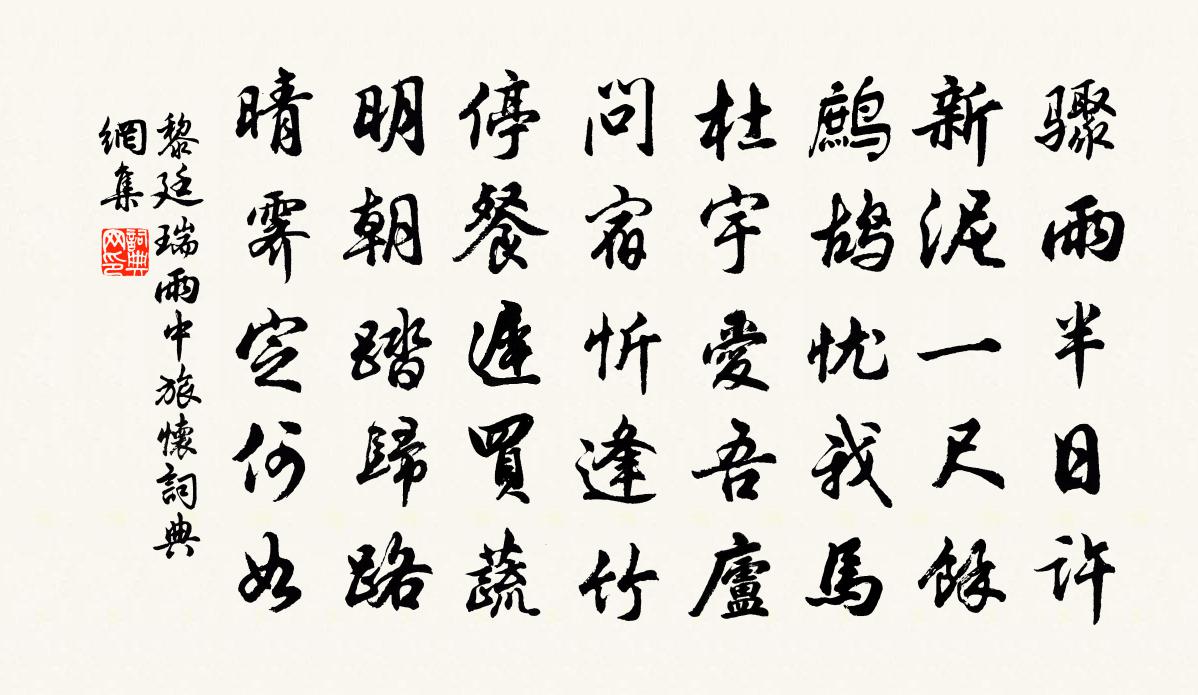 驟雨半日許
新泥一尺餘
鷓鴣忧我馬
杜宇愛吾廬
問宿忻逢竹
停餐遲買蔬
明朝踏歸路
晴霽定何如
黎廷瑞雨中旅懷詞典
網集
詞典
网印